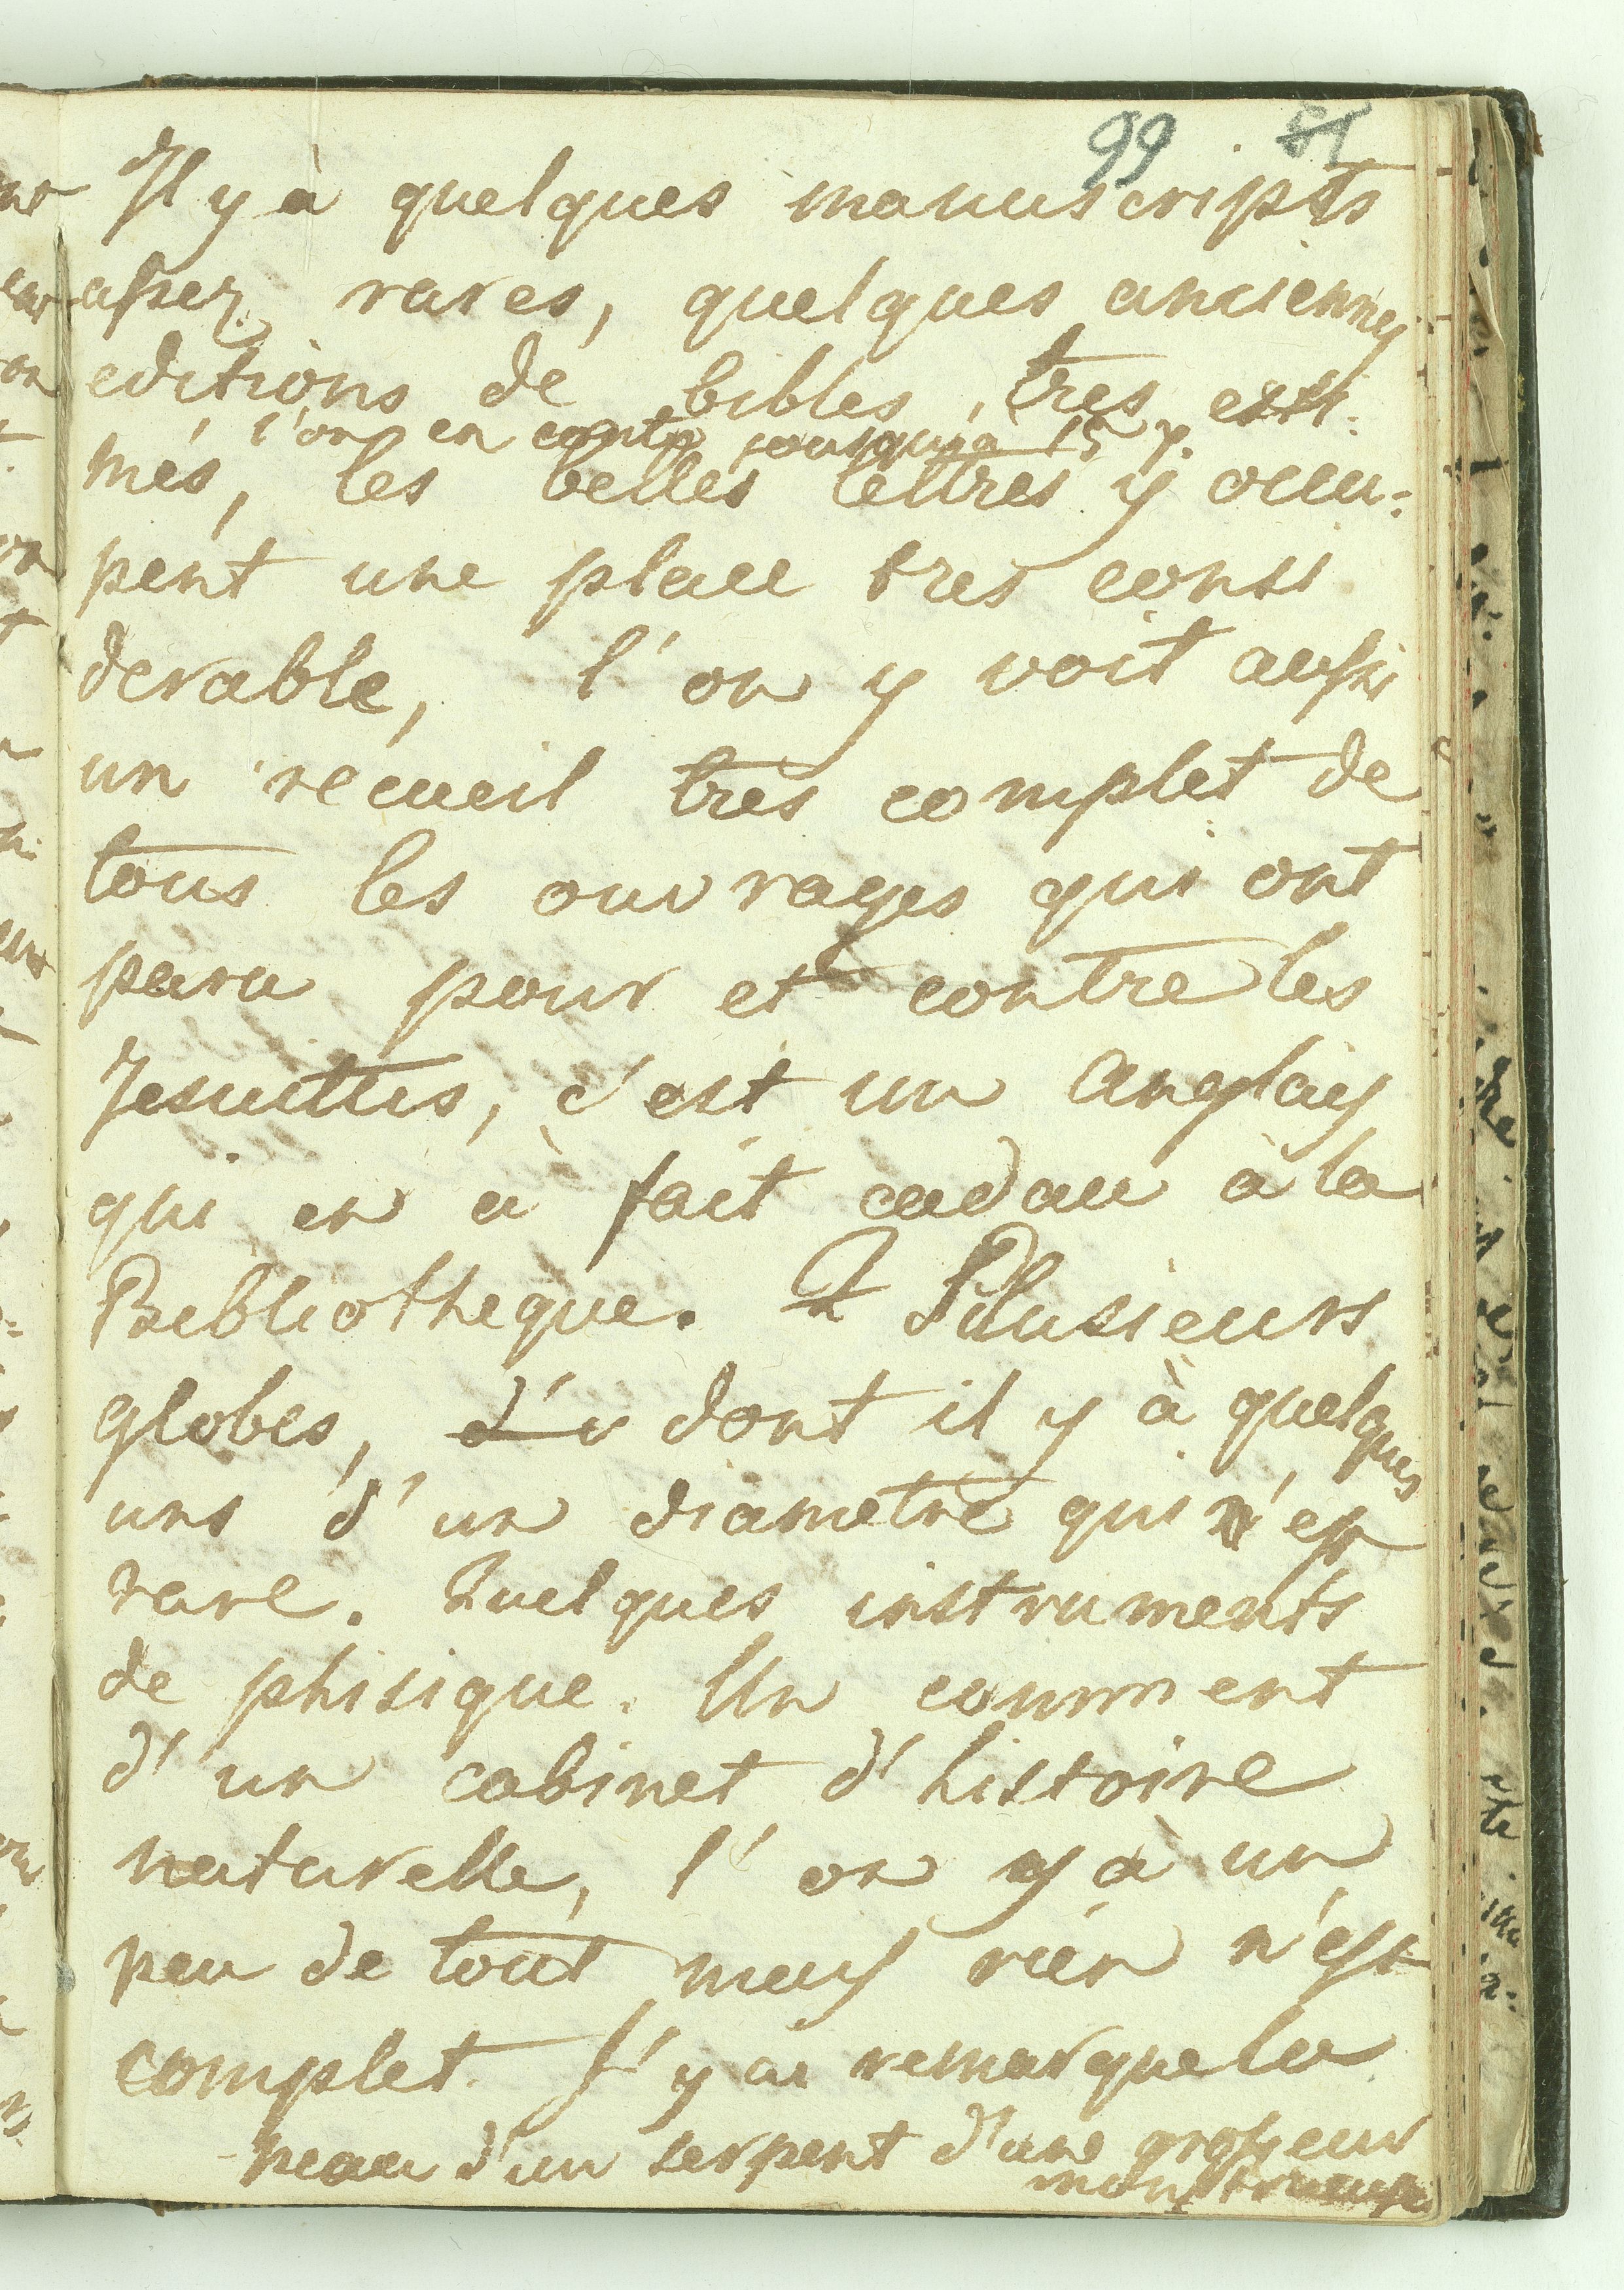 99 51
Il y à quelques manuscripts
assez rares, quelques anciennes
editions de bibles tres esti=
l'on en compte jousqu'à 15
més, les belles lettres y occu=
pent une place tres consi
derable, l'on y voit aussi
un recueil tres complet de
tous les ouvrages qui ont
paru pour et contre les
Jesuittes, c'est un Anglais
qui en a fait cadau à la
Bibliotheque. Plusieurs
globes, d'u dont il y à quelques
uns d'un diametre qui n'est
rare. Quelques instruments
de phisique. Un comment
d'un cabinet d'histoire
naturelle, l'on y à un
peu de tout mais rien n'est
complet. J'y ai remarque la
peau d'un serpent d'une grosseur
monstrueuse